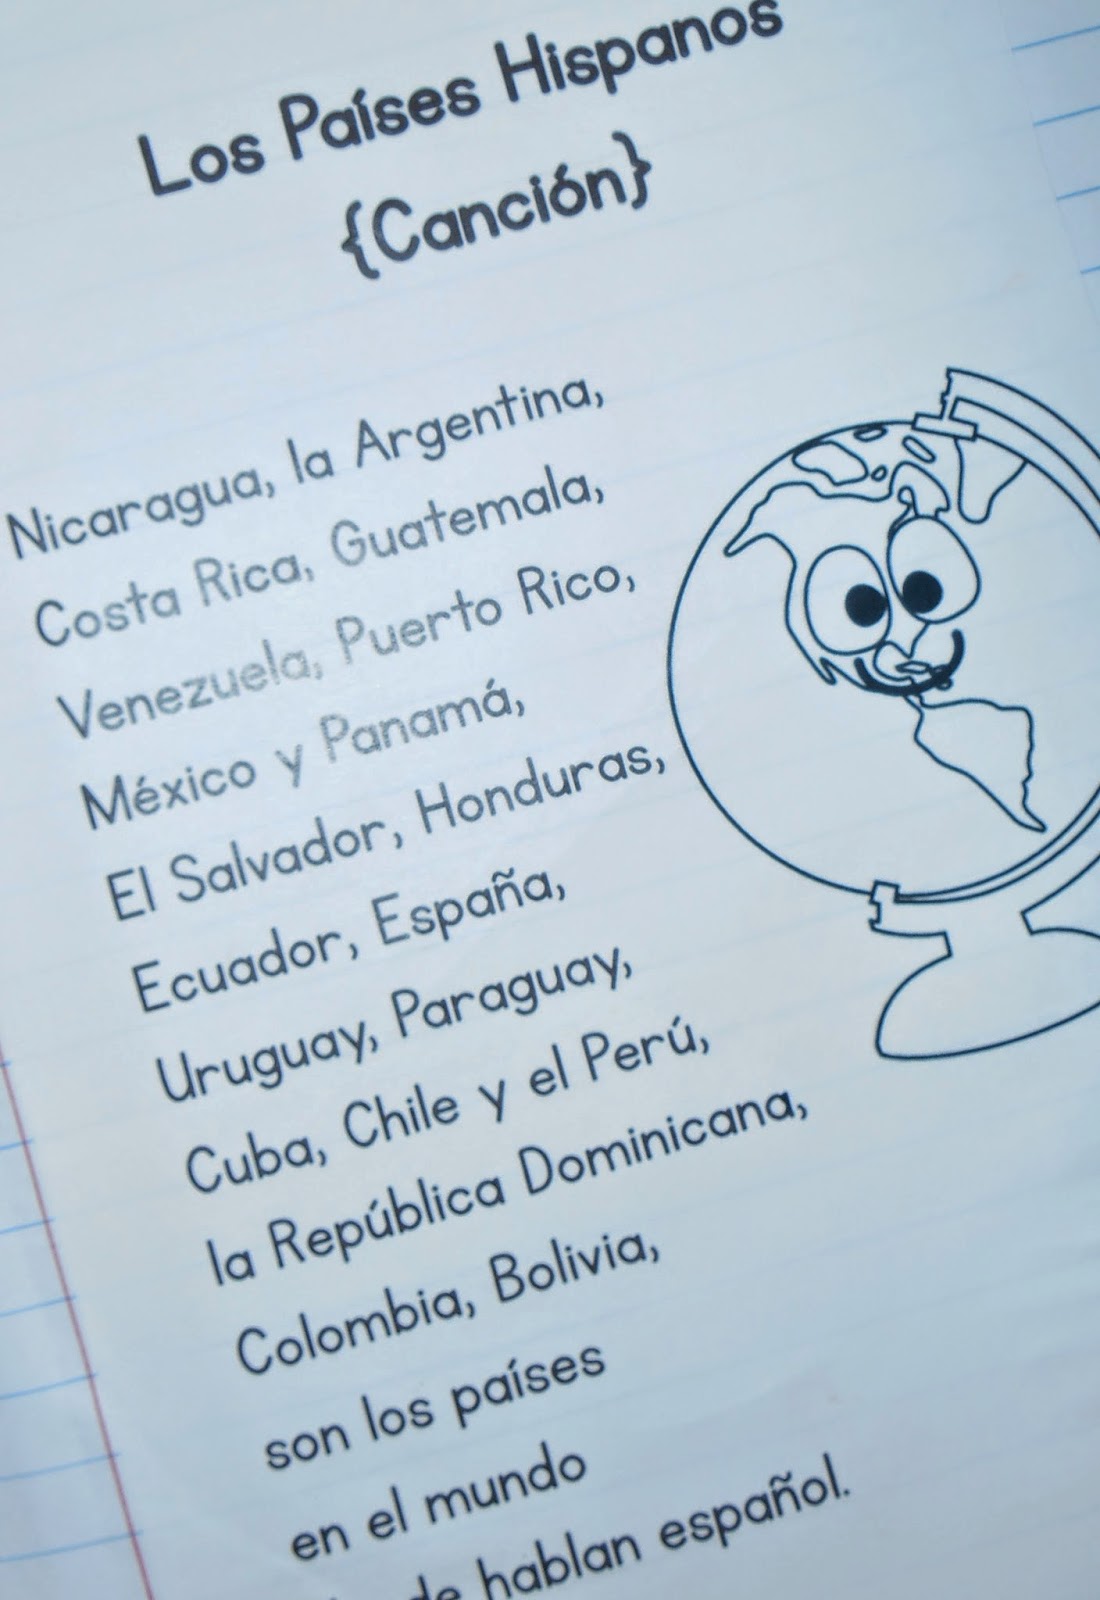 Los Países Hispanos
{Canción}
Nicaragua, la Argentina,
Costa Rica, Guatemala,
Venezuela, Puerto Rico,
México y Panamá,
El Salvador, Honduras,
Ecuador, España,
Uruguay, Paraguay,
Cuba, Chile y el Perú,
la República Dominicana,
Colombia, Bolivia,
son los países
en el mundo
hablan español.